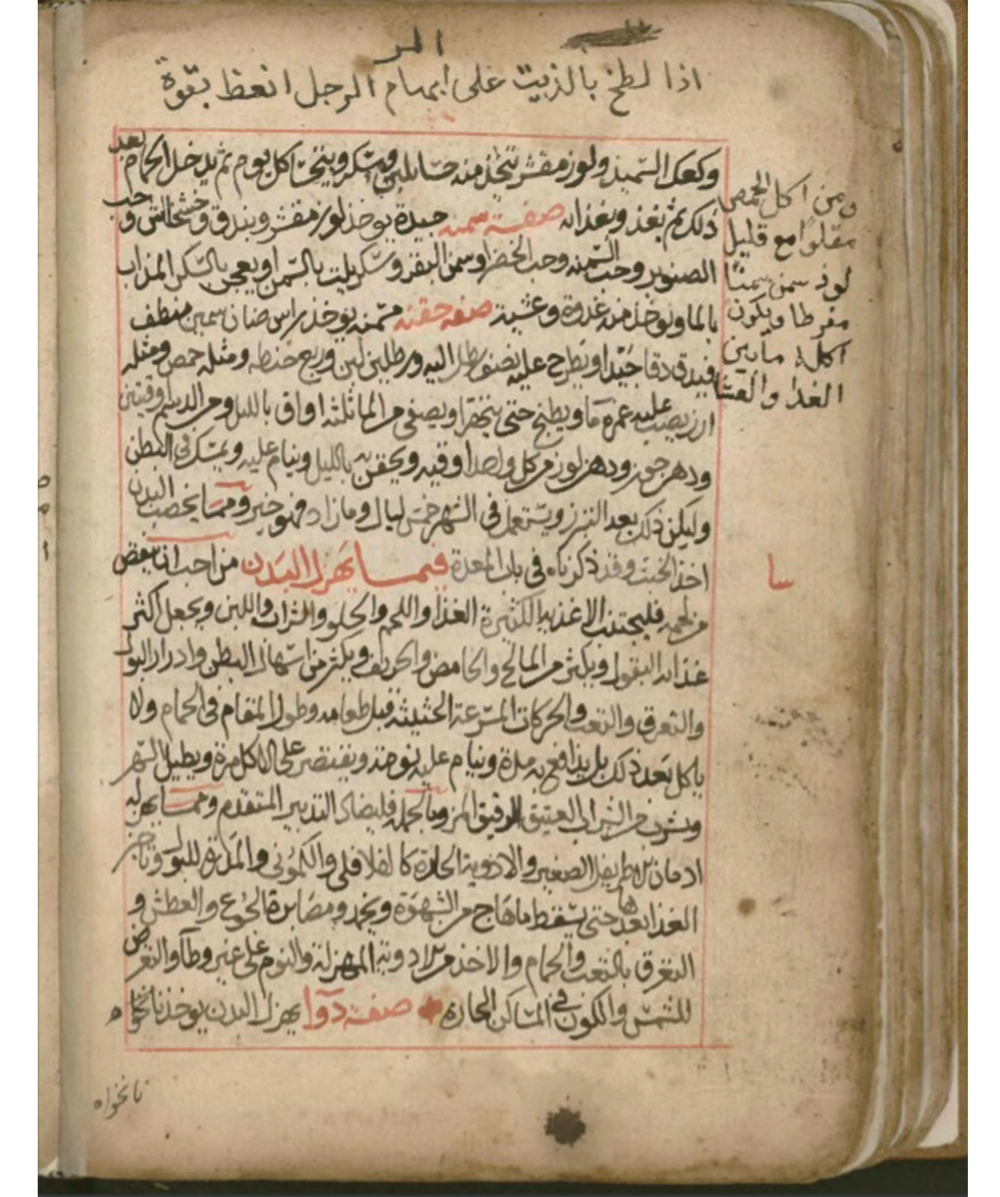 المر
اذا لطخ بالزيت على ابهام الرجل انعظ بقوة
وكعك السميد ولوز مقشر يتخذ منه حسا بلبن وسكر ويتحسا كل يوم ثم يدخل الحمام بعد
ذلك ثم بغذ وبغذايه صفة سمنه جيدة يوخذ لوز مقشر وبندق وخشخاش وحب
الصنوبر وحب السمنه وحب الخضرا وسمن البقر وسكر يلت بالسمن او يعجن بالسكر المذاب
بالما ويوخذ منه غدوة وعشية صفه حقنه مسمنه يوخذ راس ضان سمين منظف
فيدق دقا جيدا ويطرح عليه نصف رطل اليه ورطلين لبن وربع حنطه ومثله حمص ومثله
ارز يصب عليه غمرة ما ويطبخ حتى يتهرا ويصفى من الما ثلثه اواق بالليل ومن الدسم اوقيتين
ودهن جوز ودهن لوز من كل واحد اوقيه ويحقن به بالليل وينام عليه ويمسك في البطن
وليكن ذلك بعد التبرز ويستعمل في الشهر خمس ليال وما زاد فهو خير ومما يخصب البدن
اخذ الخبث وقد ذكرناه في باب المعدة فيما يهزل البدن من احب ان ينقص
من لحمه فليجتنب الاغذيه الكثيرة الغذا واللحم والحلو والشراب واللبن ويجعل اكثر
غذايه البقول ويكثر من المالح والحامض والحريف ويكثر من اسهال البطن وادرار البول
والتعرق والتعب والحركات المسرعة الحثيثه قبل طعامه وطول المقام في الحمام ولا
ياكل بعد ذلك بل يدافع به مدة وينام عليه نومه ويقتصر على الاكل مرة ويطيل السهر
ويشرب من الشراب العتيق الرقيق المز وبالجمله فليضاد التدبير المتقدم ومما يهزله
ادمان الاطريفل الصغير والادوية الحارة كالفلافلي والكموني والمدرة للبول وتاخير
الغذا بعدها حتى يسقط ما هاج من الشهوة ويخمد ومصابرة الجوع والعطش و
التعرق بالتعب والحمام والاخذ من الادوية المهزلة والنوم على غير وطا والتعرض
للشمس والكون في المساكن الحارة صفة دوا يهزل البدن يوخذ نانخواه
ومن اكل الحمص
مقلوا مع قليل
لوز سمن سمنا
مفرطا ويكون
اكله ما بين
الغدا والعشا
نانخواه